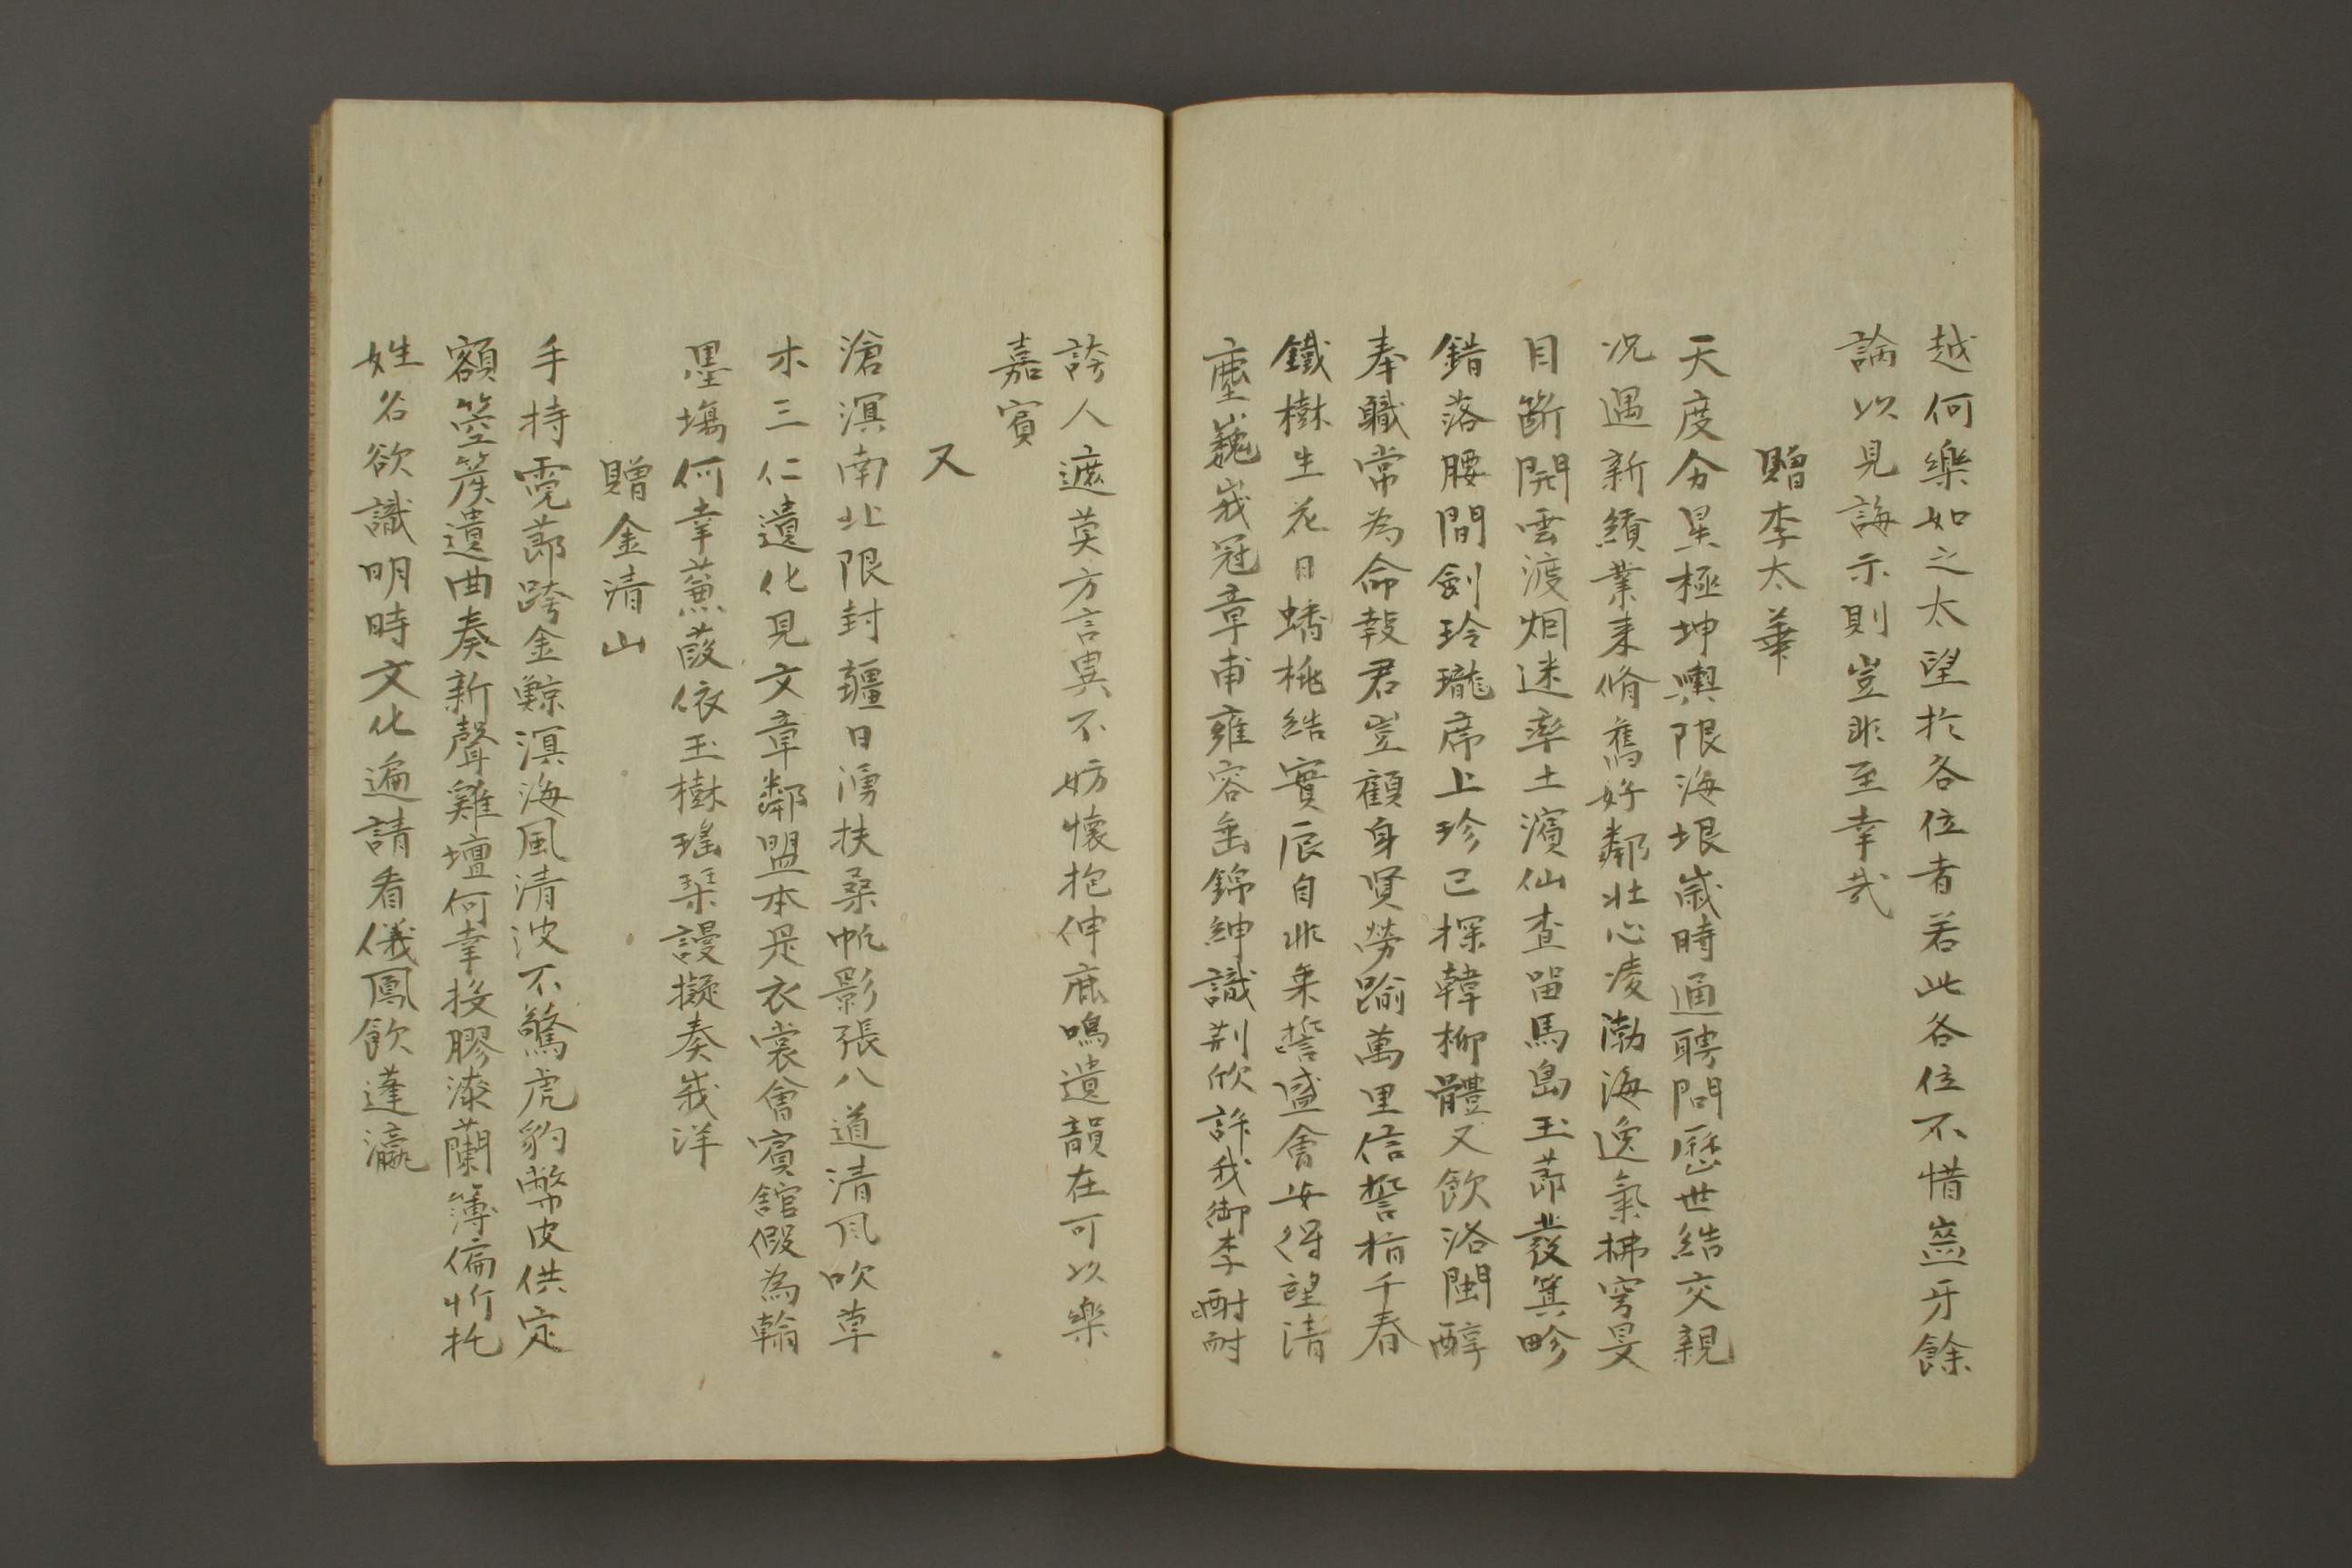 越何樂如之太望於各位者若此各位不惜齒牙餘
論以見誨示則豈非至幸哉
贈李太華
天度分星極坤輿限海垠歲時通聘問歷世結交親
况遇新纘業来脩舊好鄰壮心凌渤海逸氣拂穹旻
目断開雲渡烟迷率土濱仙査畄馬島玉莭發箕畛
錯落腰間劍玲瓏席上珍已探韓柳體又飲洛閩醇
奉職常為命報君豈顧身賢勞踰萬里信誓指千春
鐵樹生花日蟠桃結實辰自非来誓盛會安得望清
塵巍峩冠章甫雍容垂錦紳識荆欣許我御李酣酎
誇人遮莫方言異不妨懷抱伸鹿鳴遺韻在可以樂
嘉賓
又
滄溟南北限封疆日湧扶桑帆影張八道清風吹草
木三仁遺化見文章鄰盟本是衣裳會賓舘假為翰
墨塲何幸蒹葭依玉樹瑤琹謾擬奏峩洋
贈金清山
手持霓莭跨金鯨溟海風清波不驚虎豹幣皮供定
額箜篌遺曲奏新聲雞壇何幸投膠漆蘭簿偏忻托
姓名欲識明時文化遍請看儀鳳飲蓬瀛